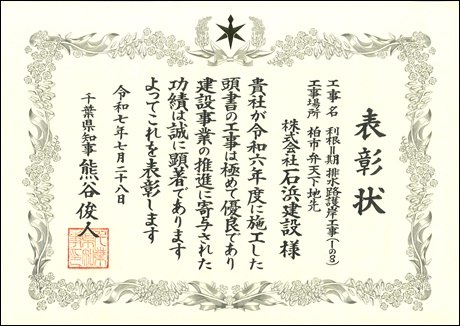 表彰状
工事名 利根Ⅱ期 排水路護岸工事(1の3)
工事場所 柏市弁天下地先
株式会社石浜建設 様
貴社が令和六年度に施工した
頭書の工事は極めて優良であり
建設事業の推進に寄与された
功績は誠に顕著であります
よってこれを表彰します
令和七年七月二十八日
千葉県知事 熊谷俊人